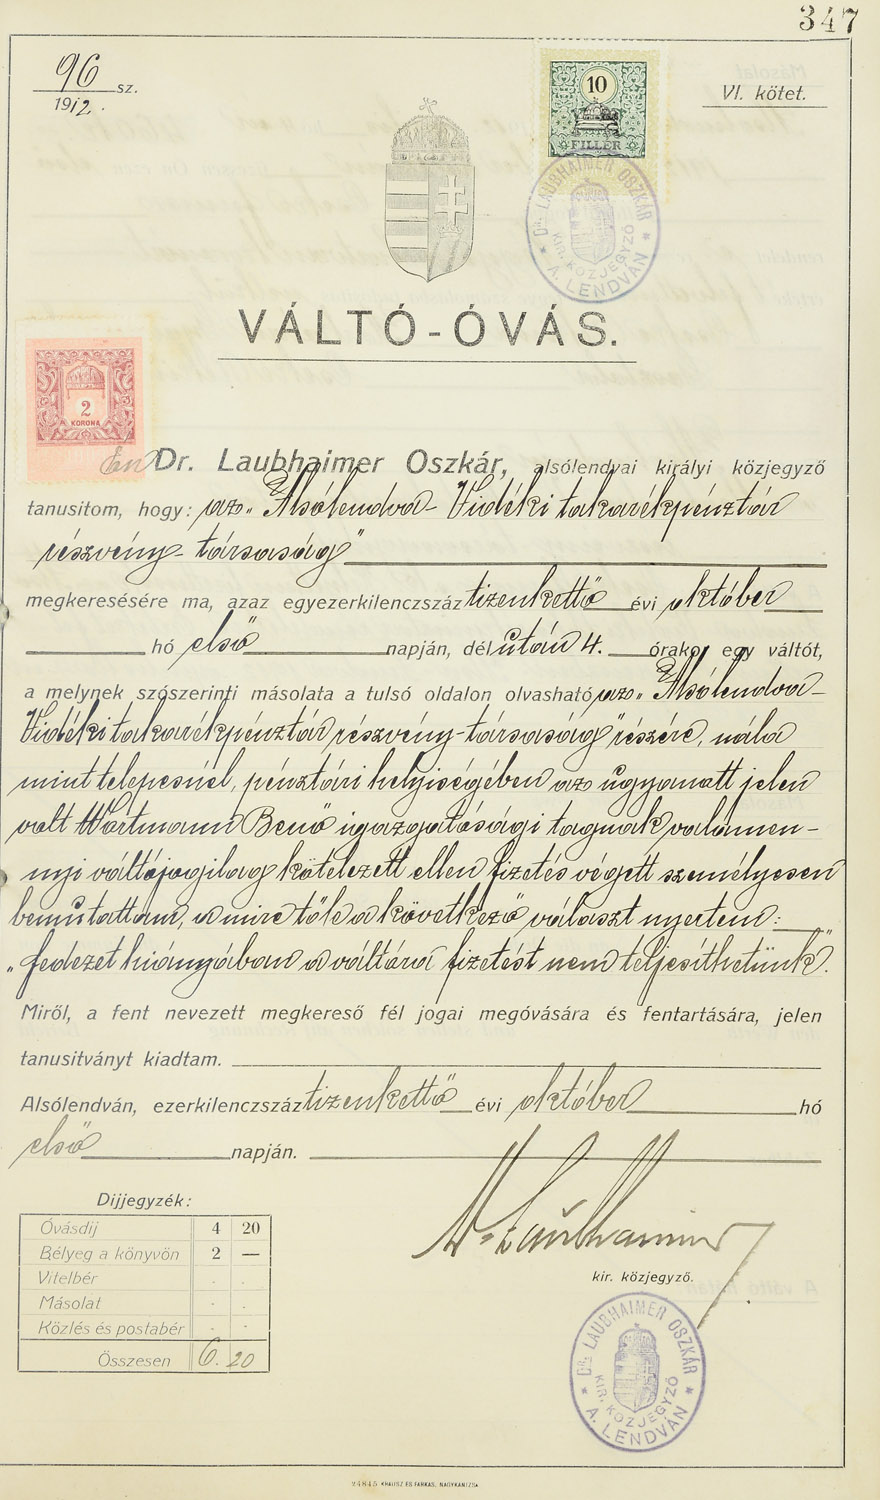 347
96 sz.
1912.
VI. kötet.
10
FILLÉR
DR. LAUBHAIMER OSZKÁR
KIR. KÖZJEGYZŐ
A. LENDVÁN
VÁLTÓ-ÓVÁS.
2
KORONA
Én Dr. Laubhaimer Oszkár, alsólendvai királyi közjegyző
tanusitom, hogy: az „Alsólendva-Vidéki takarékpénztár
részvény-társaság"
megkeresésére ma, azaz egyezerkilenczszáz tizenkettő évi október
hó első napján, dél után 4. órakor egy váltót,
a melynek szószerinti másolata a tulsó oldalon olvasható az „Alsólendva-
Vidéki takarékpénztár részvény-társaság" részére, nála
mint telepesnél, pénztári helyiségében az ugyanatt jelen
valt Wortmann Benő igazgatósági tagnak valamen-
nyi váltójogilag kötelezett ellen fizetés végett személyesen
bemutattam, a mire tőle a következő választ nyertem:
„fedezet hiányában a váltóra fizetést nem teljesíthetünk".
Miről, a fent nevezett megkereső fél jogai megóvására és fentartására, jelen
tanusitványt kiadtam.
Alsólendván, ezerkilenczszáz tizenkettő évi október hó
első napján.
Dr Laubhaimer
kir. közjegyző.
Dijjegyzék:
Óvásdij 4 20
Bélyeg a könyvön 2 —
Vitelbér
Másolat
Közlés és postabér
Összesen 6. 20
DR. LAUBHAIMER OSZKÁR
KIR. KÖZJEGYZŐ
A. LENDVÁN
24845 KRAUSZ ÉS FARKAS, NAGYKANIZSA